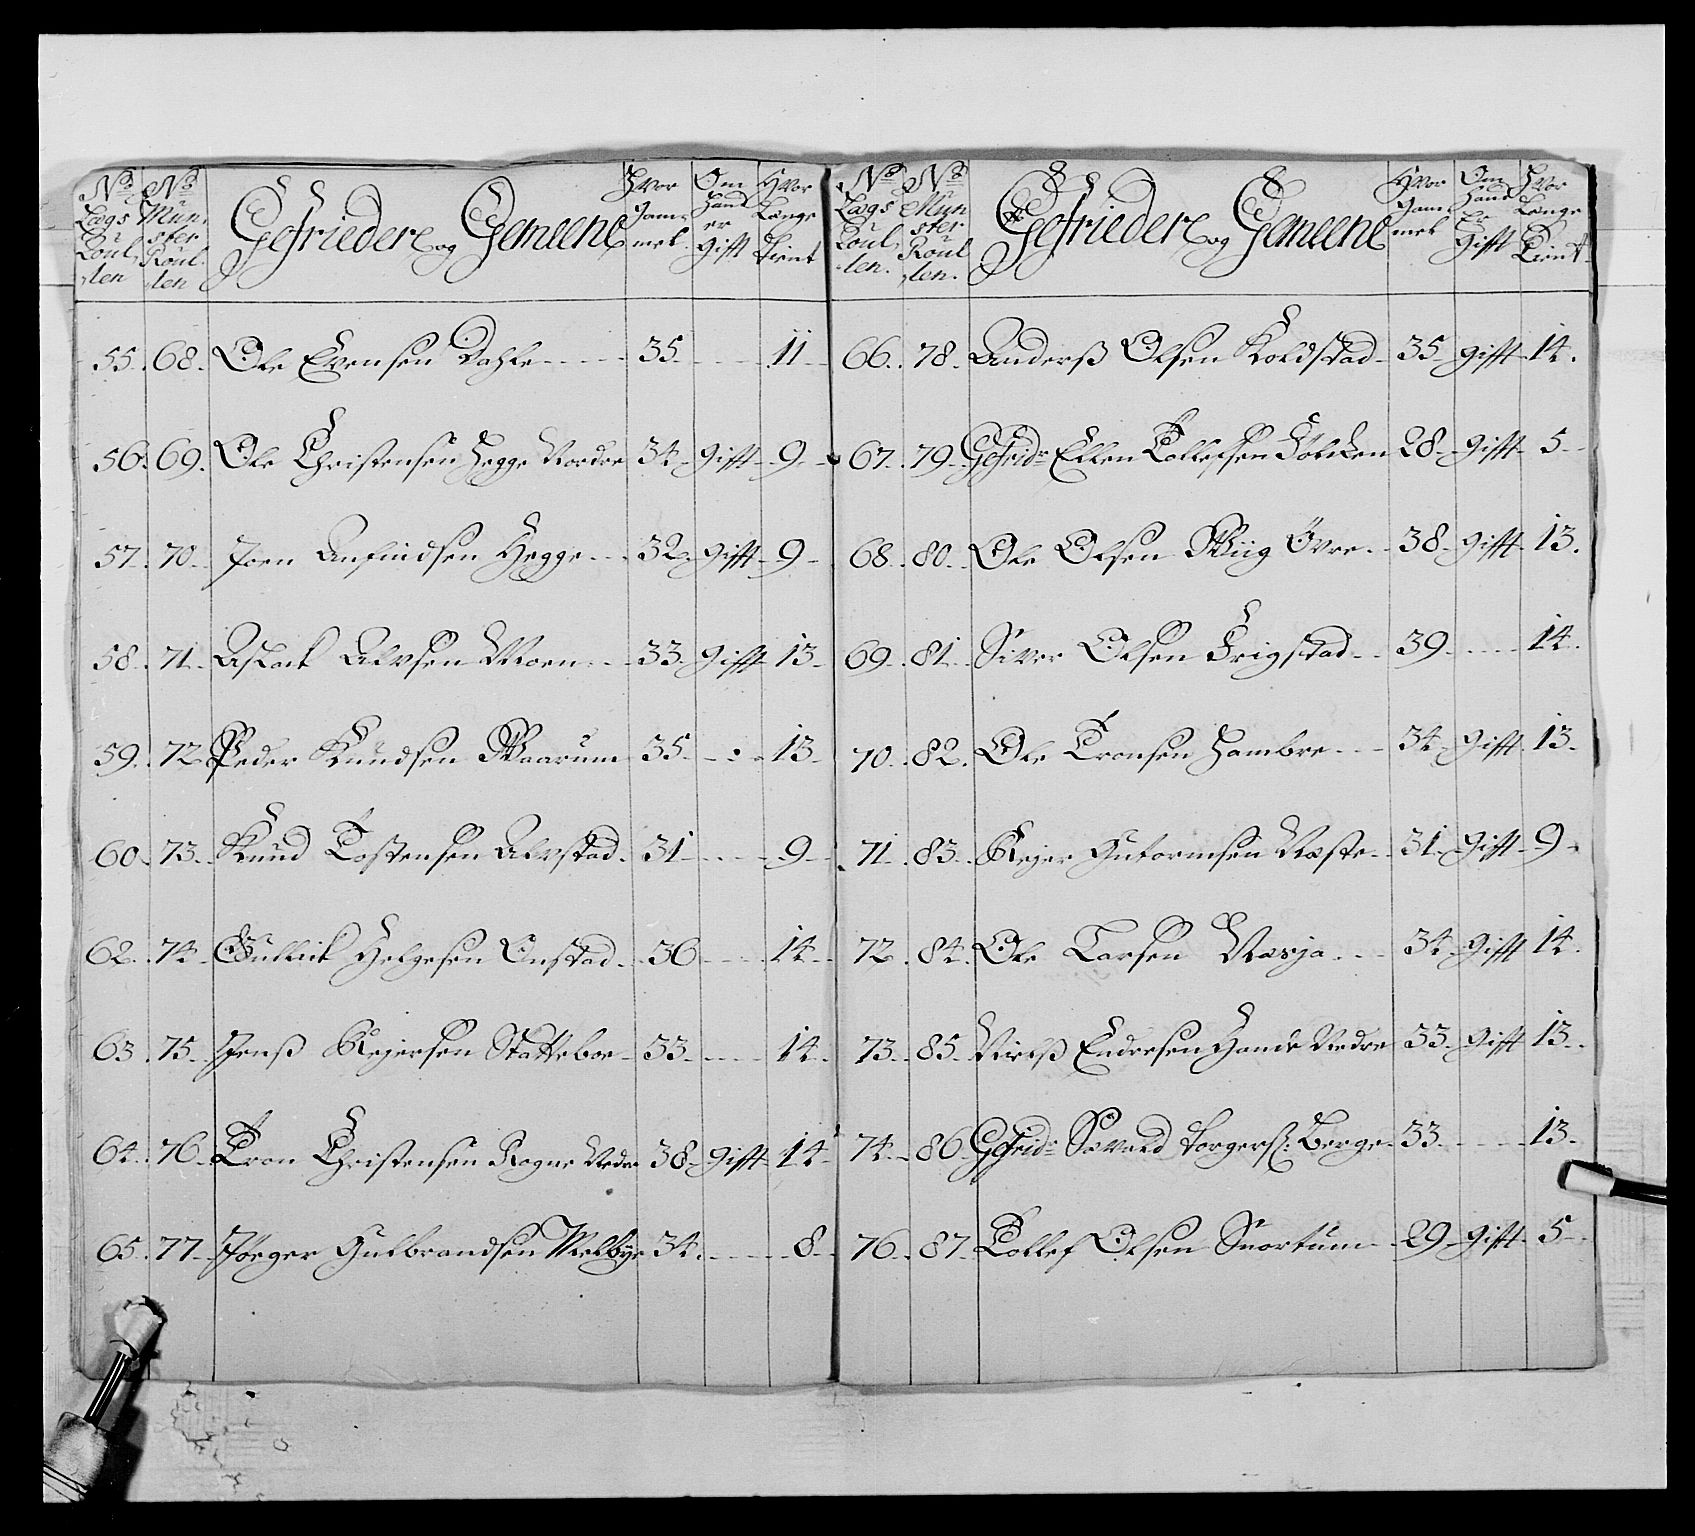 No Lægs Roullen No Munster Roullen Gefriedere og Gemeene Hvor Gammel Om Hand er Gift Hvor Længe Tient
55. 68. Ole Evensen Dahle 35 11
56. 69. Ole Christensen Hegge Nordre 34 Gift 9
57. 70. Joen Anfindsen Hegge 32 Gift 9
58. 71. Aslak Alvsen Moen 33 Gift 13
59. 72. Peder Knudsen Waarum 35 13
60. 73. Knud Tostensen Alvstad 31 9
62. 74. Gullick Helgesen Onstad 36 14
63. 75. Jenß Rejersen Skatteboe 33 14
64. 76. Tron Christensen Rogne Nedre 38 Gift 14
65. 77. Jörger Gulbrandsen Melbye 34 8
No Lægs Roullen. No Munster Roullen. Gefriedere og Gemeene Hvor Gammel Om Hand Er Gift Hvor Længe Tient
66. 78. Anderß Olsen Koldstad 35 Gift 14.
67. 79. Gefridr Ellen Tollefsen 28 Gift 5
68. 80. Ole Olsen Wiig Övre 38 Gift 13.
69. 81. Siver Olsen Frigstad 39 14.
70. 82. Ole Tronsen Hambre 34 Gift 13.
71. 83. Rejer Guttormsen Næste 31 Gift 9
72. 84. Ole Larsen Næsja 34 Gift 14.
73. 85. Nielß Endresen Hande Nedre 33 Gift 13.
74. 86. Gefridr Sævald Torgerß: Berge 33 13.
76. 87. Tollef Olsen Snortum 29 Gift 5